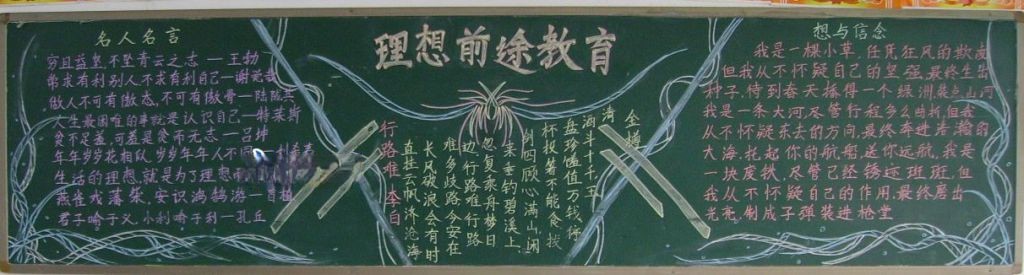 理想前途教育
名人名言
穷且益坚,不坠青云之志 — 王勃
希求有利别人不求有利自己—谢觉哉
做人不可有傲态,不可有傲骨—陆陇其
人生最困难的事就是认识自己—特莱斯
贫不足羞,可羞是贫而无志—吕坤
年年岁岁花相似,岁岁年年人不同
生活的理想,就是为了理想
燕雀戏藩柴,安识鸿鹄游—曹植
君子喻于义,小利喻于利—孔丘
行路难 李白
金樽
清
酒斗十千玉
盘珍馐值万钱,停
杯投箸不能食,拔
剑四顾心满山闲
来垂钓碧溪上
忽复乘舟梦日
边行路难行路
难多歧路今安在
长风破浪会有时
直挂云帆济沧海
想与信念
我是一棵小草,任凭狂风的欺凌
但我从不怀疑自己的坚强,最终生出
种子,待到春天捧得一个绿洲,装点山河
我是一条大河,尽管行程多么曲折,但我
从不怀疑东去的方向,最终奔进浩瀚的
大海,托起你的航船,送你远航,我是
一块废铁,尽管已经锈迹斑斑,但
我从不怀疑自己的作用,最终磨出
光亮,制成子弹装进枪堂